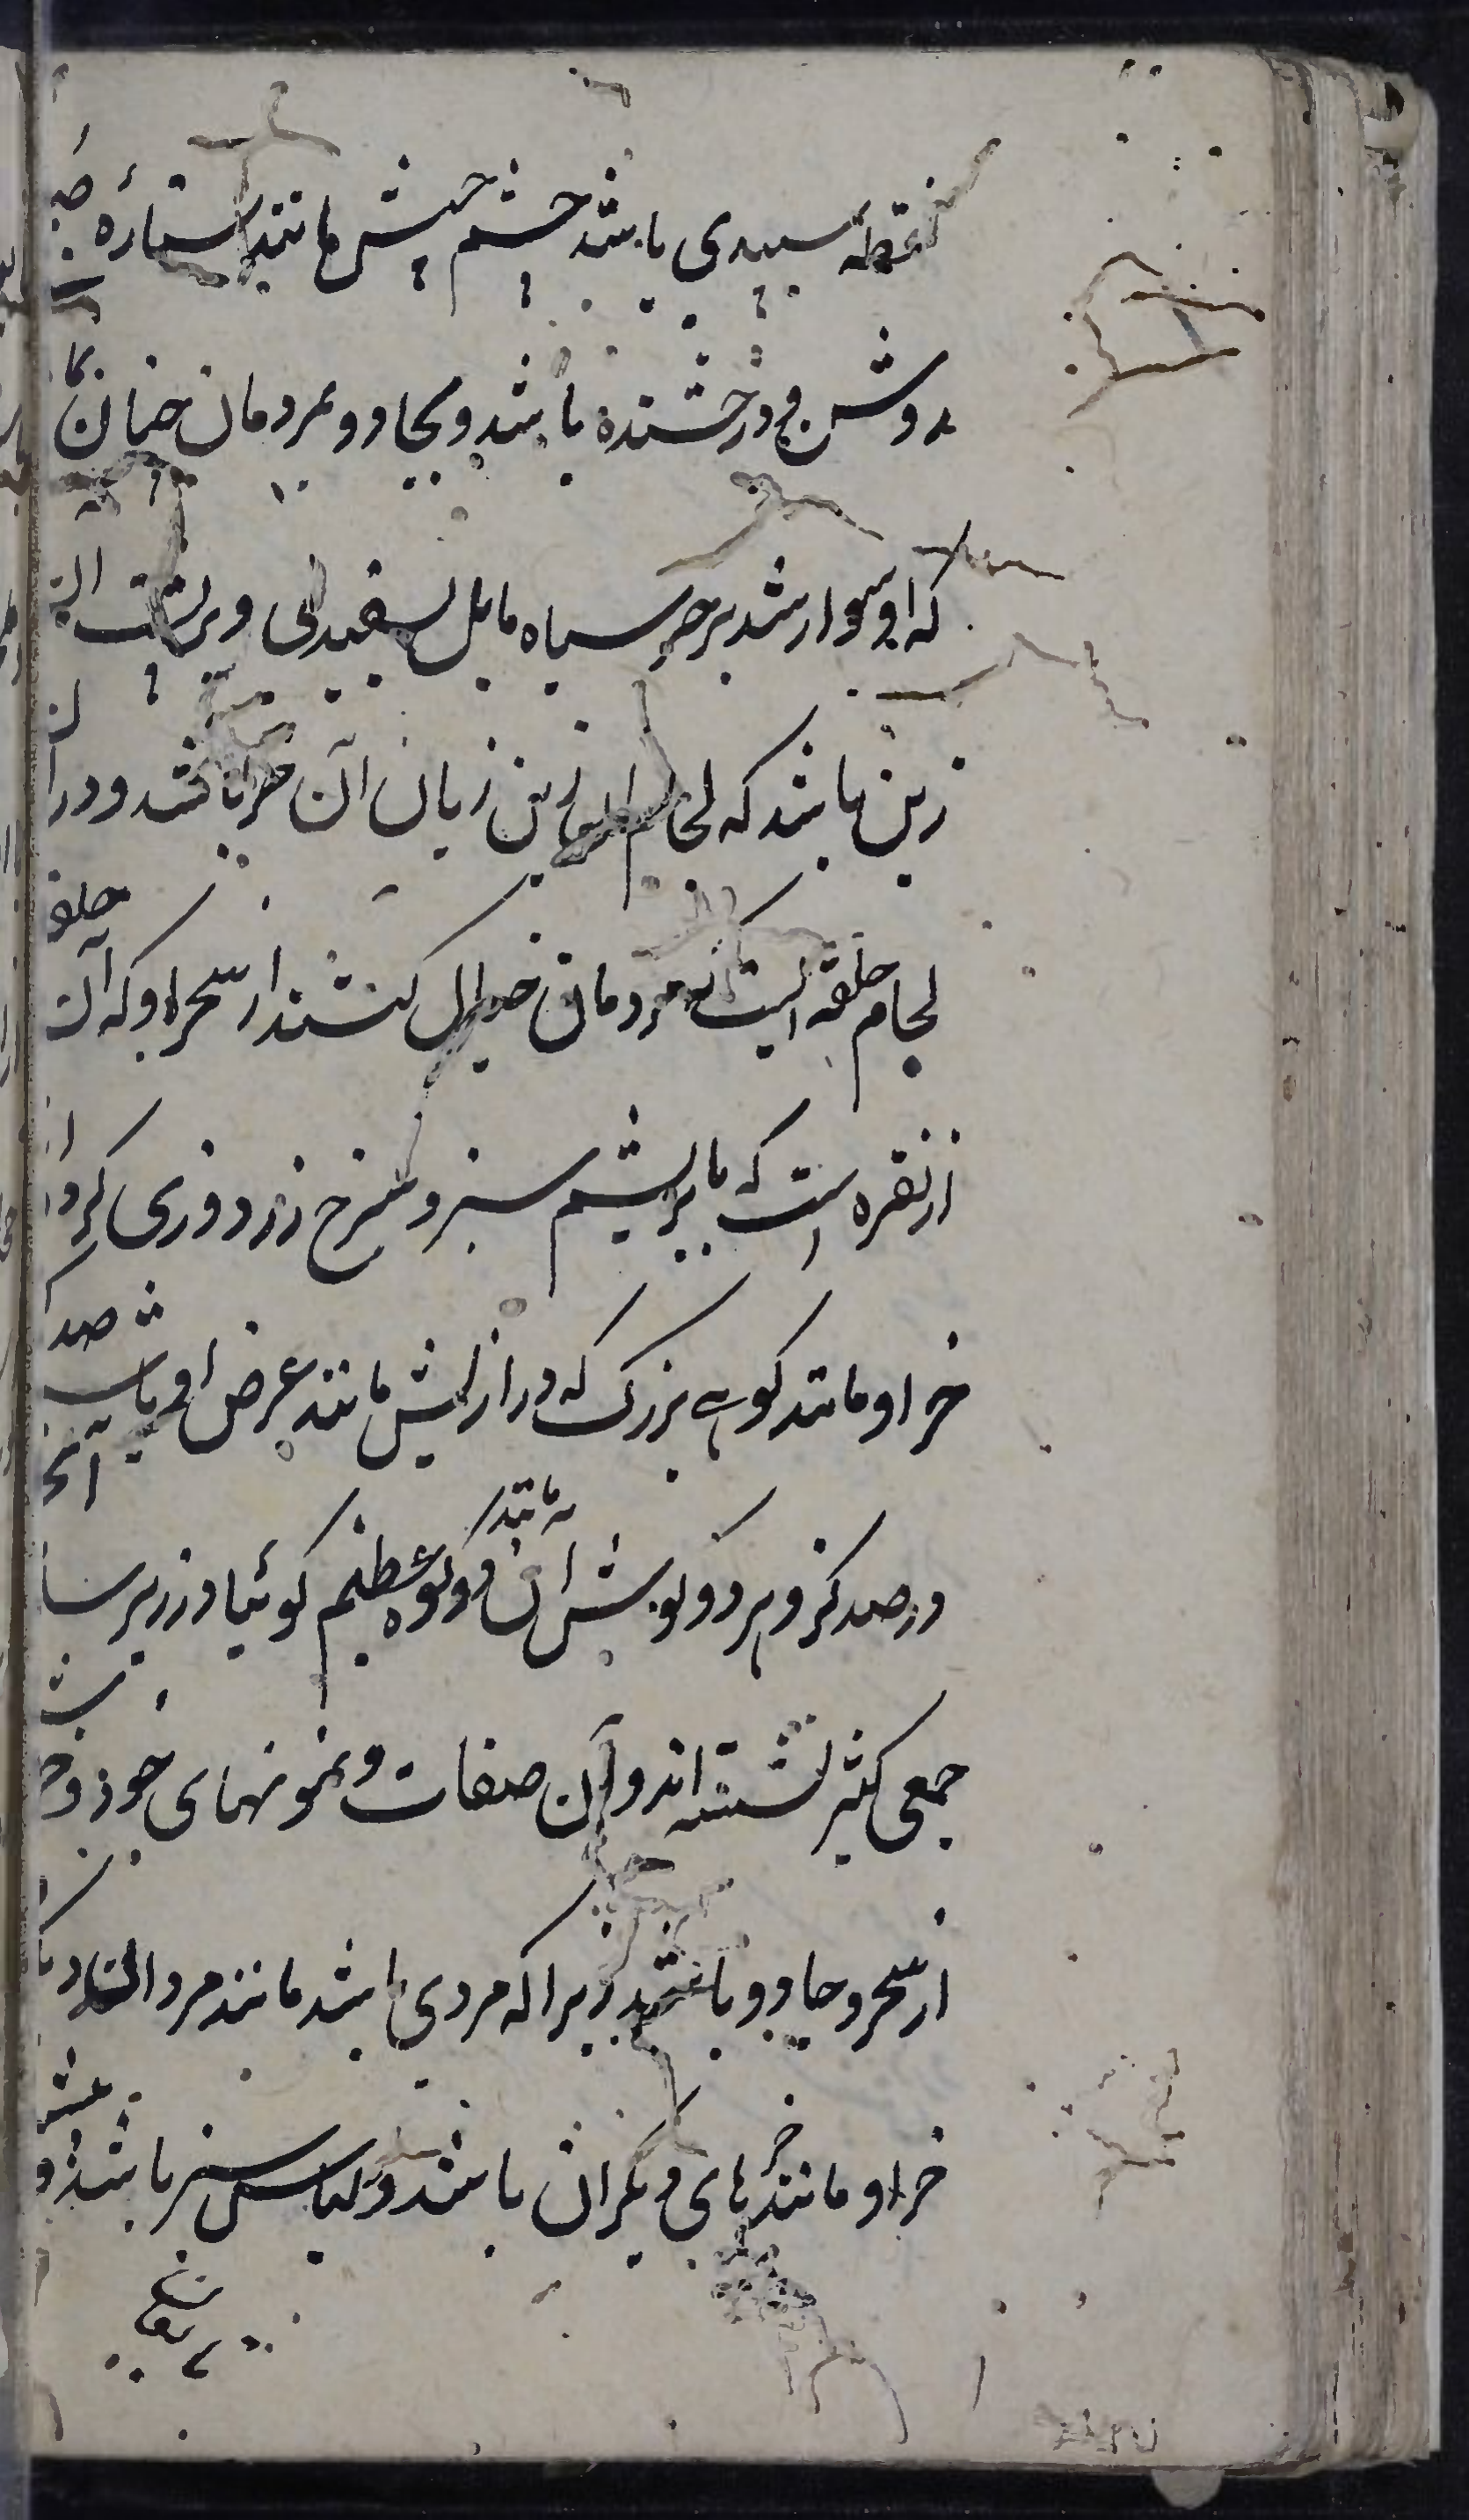 نقطه سپیدی باشد چشم چپش مانند ستارهٔ
روشن و درخشنده باشد و بجادو بمردمان چنان
که او سوار شد بر خر سیاه مایل بسفیدی و بر پشت
زین باشد که لجام این زیان آن خر باشد و در
لجام حلقه ایست که مردمان خیال کنند از سحر او که آن حلقه
از نقره است که بابریشم سبز و سرخ زردوزی کرده
خر او مانند کوهی بزرک که درازایش مانند عرض او باشد صد
در صد کز و هر دو کوشش آن مانند دو کوه عظیم کوئیا در زیر
جمعی کثیر نشسته اند و آن صفات و نمونهای خود
از سحر و جادو باشد زیرا که مردی باشد مانند مردان
خر او مانند خرهای دیکران باشد و لباس سبز باشد و